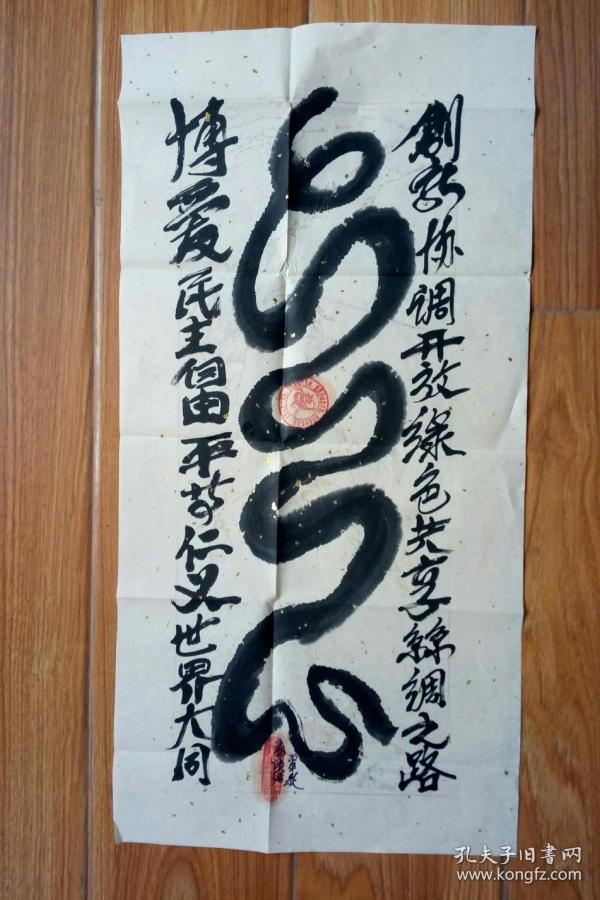 創新协调开放綠色共享絲绸之路
博爱民主自由平等仁义世界大同
孔夫子旧書网
www.kongfz.com